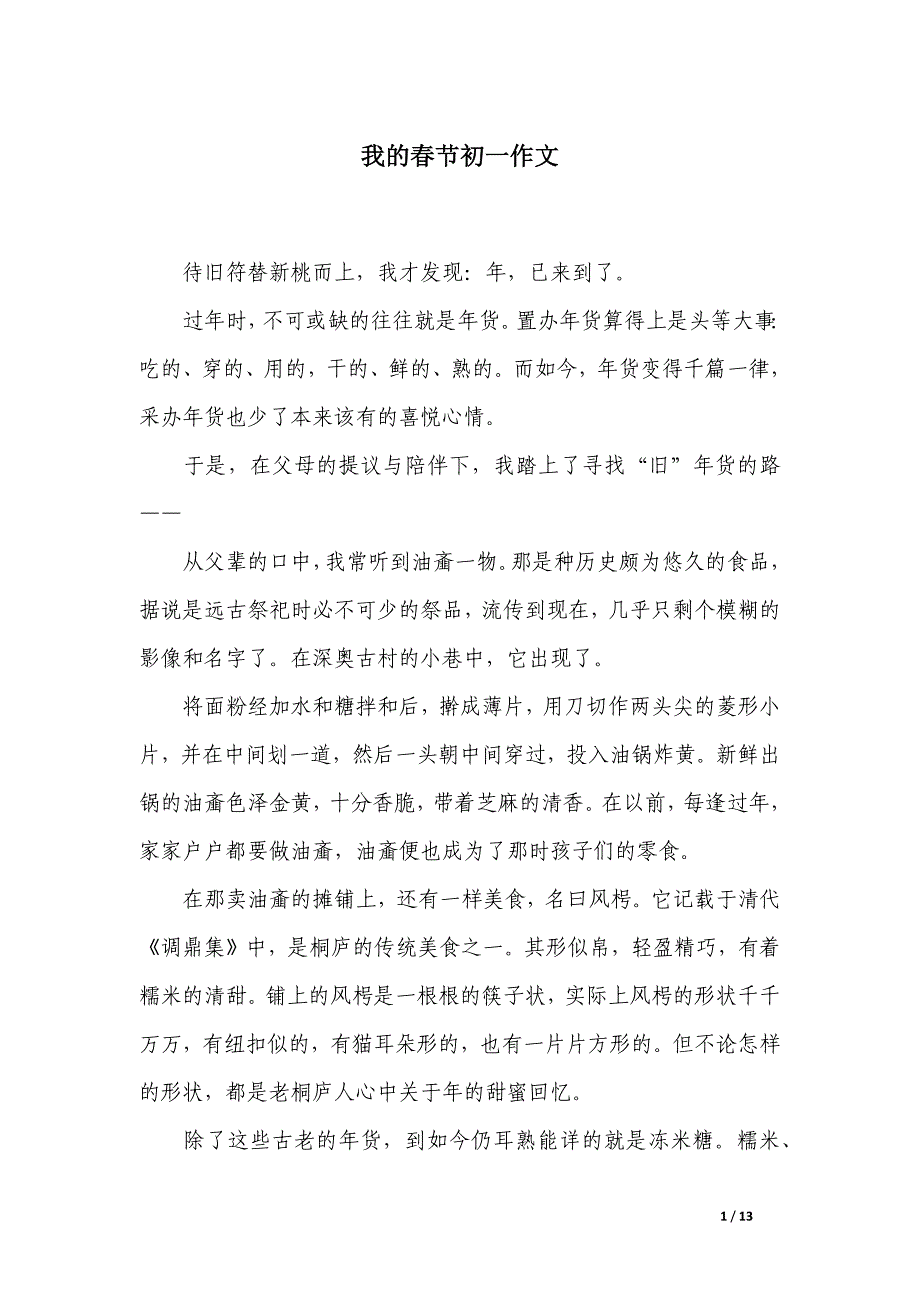 我的春节初一作文
待旧符替新桃而上，我才发现：年，已来到了。
过年时，不可或缺的往往就是年货。置办年货算得上是头等大事：
吃的、穿的、用的，干的、鲜的、熟的。而如今，年货变得千篇一律，
采办年货也少了本来该有的喜悦心情。
于是，在父母的提议与陪伴下，我踏上了寻找“旧”年货的路
——
从父辈的口中，我常听到油斋一物。那是种历史颇为悠久的食品，
据说是远古祭祀时必不可少的祭品，流传到现在，几乎只剩个模糊的
影像和名字了。在深奥古村的小巷中，它出现了。
将面粉经加水和糖拌和后，擀成薄片，用刀切作两头尖的菱形小
片，并在中间划一道，然后一头朝中间穿过，投入油锅炸黄。新鲜出
锅的油斋色泽金黄，十分香脆，带着芝麻的清香。在以前，每逢过年，
家家户户都要做油斋，油斋便也成为了那时孩子们的零食。
在那卖油斋的摊铺上，还有一样美食，名曰风枵。它记载于清代
《调鼎集》中，是桐庐的传统美食之一。其形似帛，轻盈精巧，有着
糯米的清甜。铺上的风枵是一根根的筷子状，实际上风枵的形状千千
万万，有纽扣似的，有猫耳朵形的，也有一片片方形的。但不论怎样
的形状，都是老桐庐人心中关于年的甜蜜回忆。
除了这些古老的年货，到如今仍耳熟能详的就是冻米糖。糯米、
1 / 13